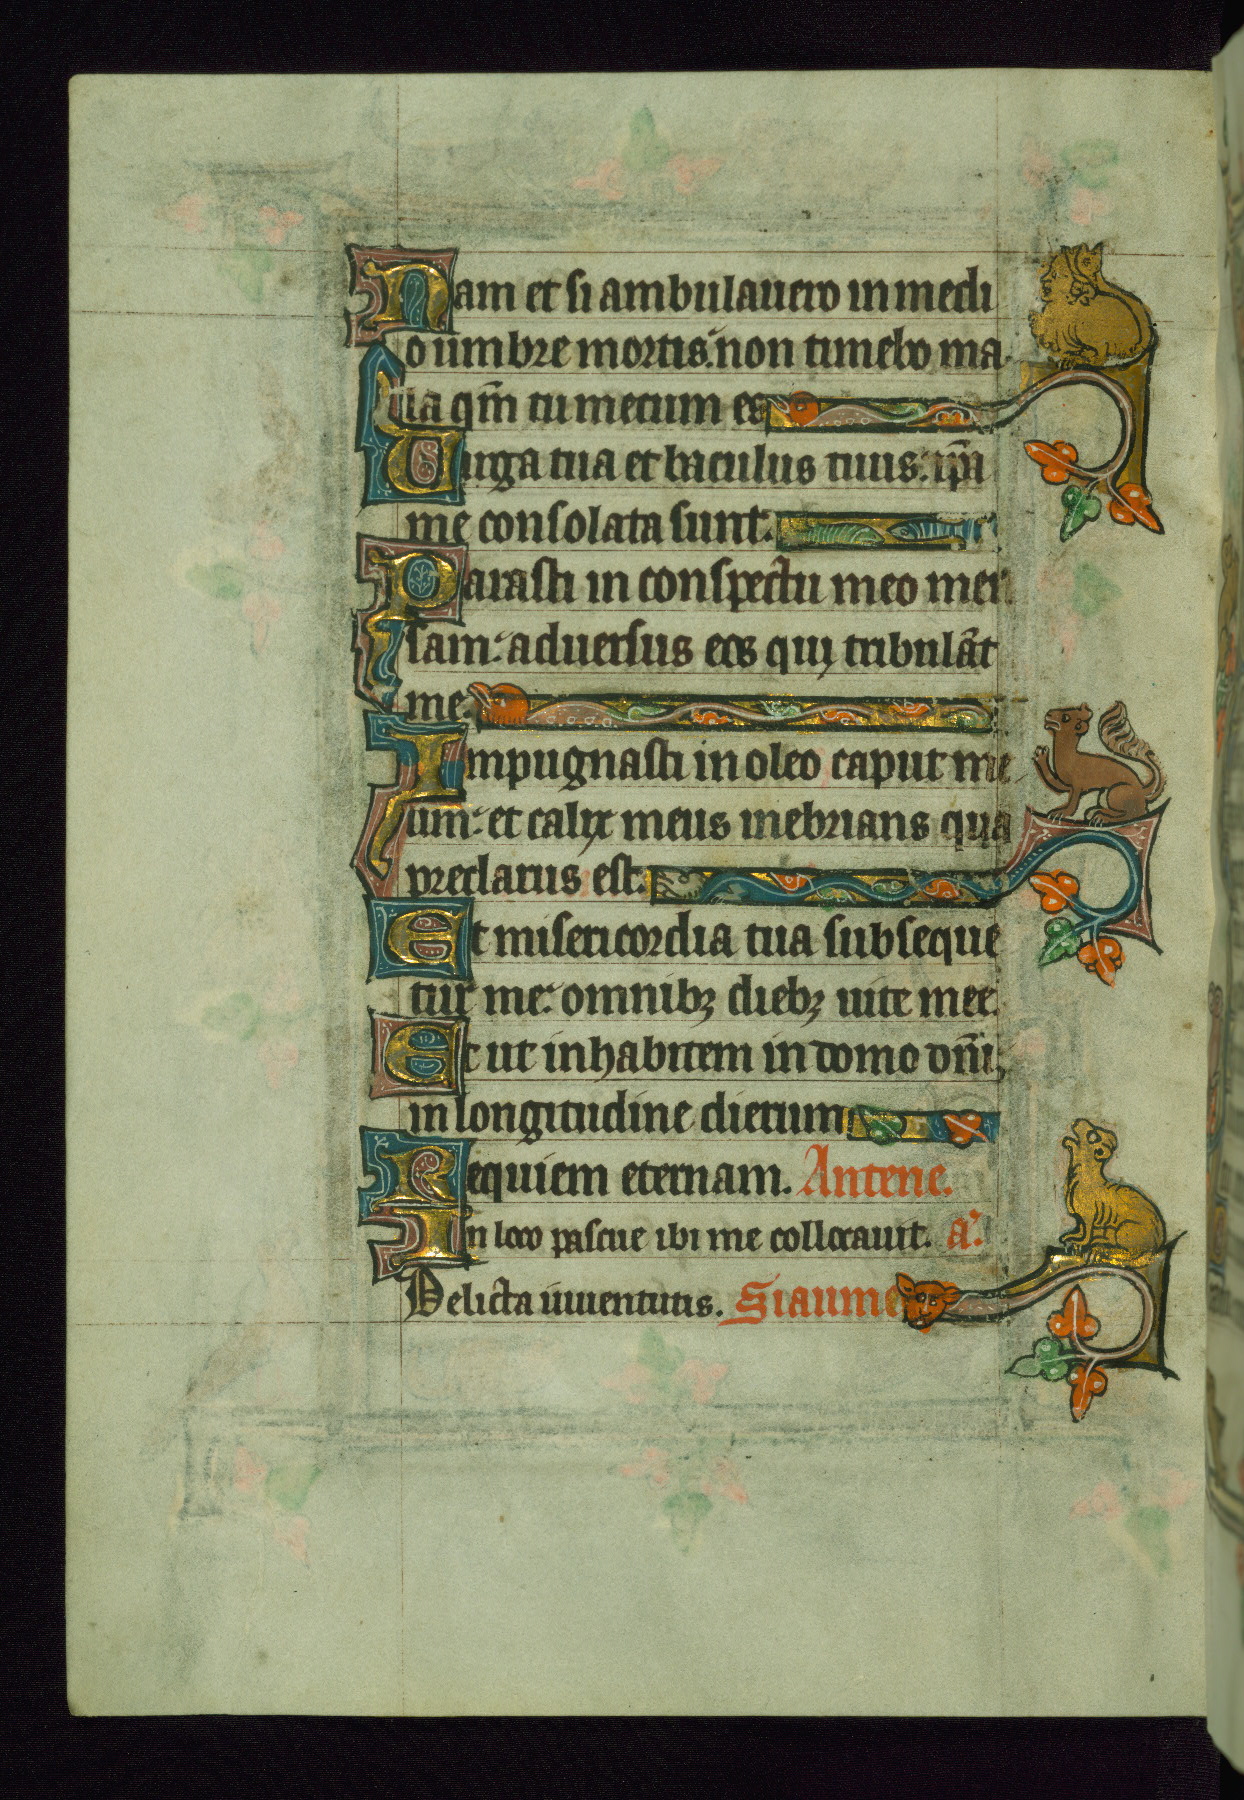 Nam et si ambulauero in medi
o umbre mortis. non timebo ma
la qm̄ tu mecum es
Uirga tua et baculus tuus: ip̄a
me consolata sunt.
Parasti in conspectu meo men
sam: aduersus eos qui tribulāt
me.
Impugnasti in oleo caput me
um: et calix meus inebrians qua
preclarus est.
Et misericordia tua subseque
tur me: omnibꝫ diebꝫ uite mee.
Et ut inhabitem in domo dn̄i,
in longitudine dierum
Requiem eternam. Antene.
In loco pascue ibi me collocauit. a.
Delicta iuuentutis. Siaume